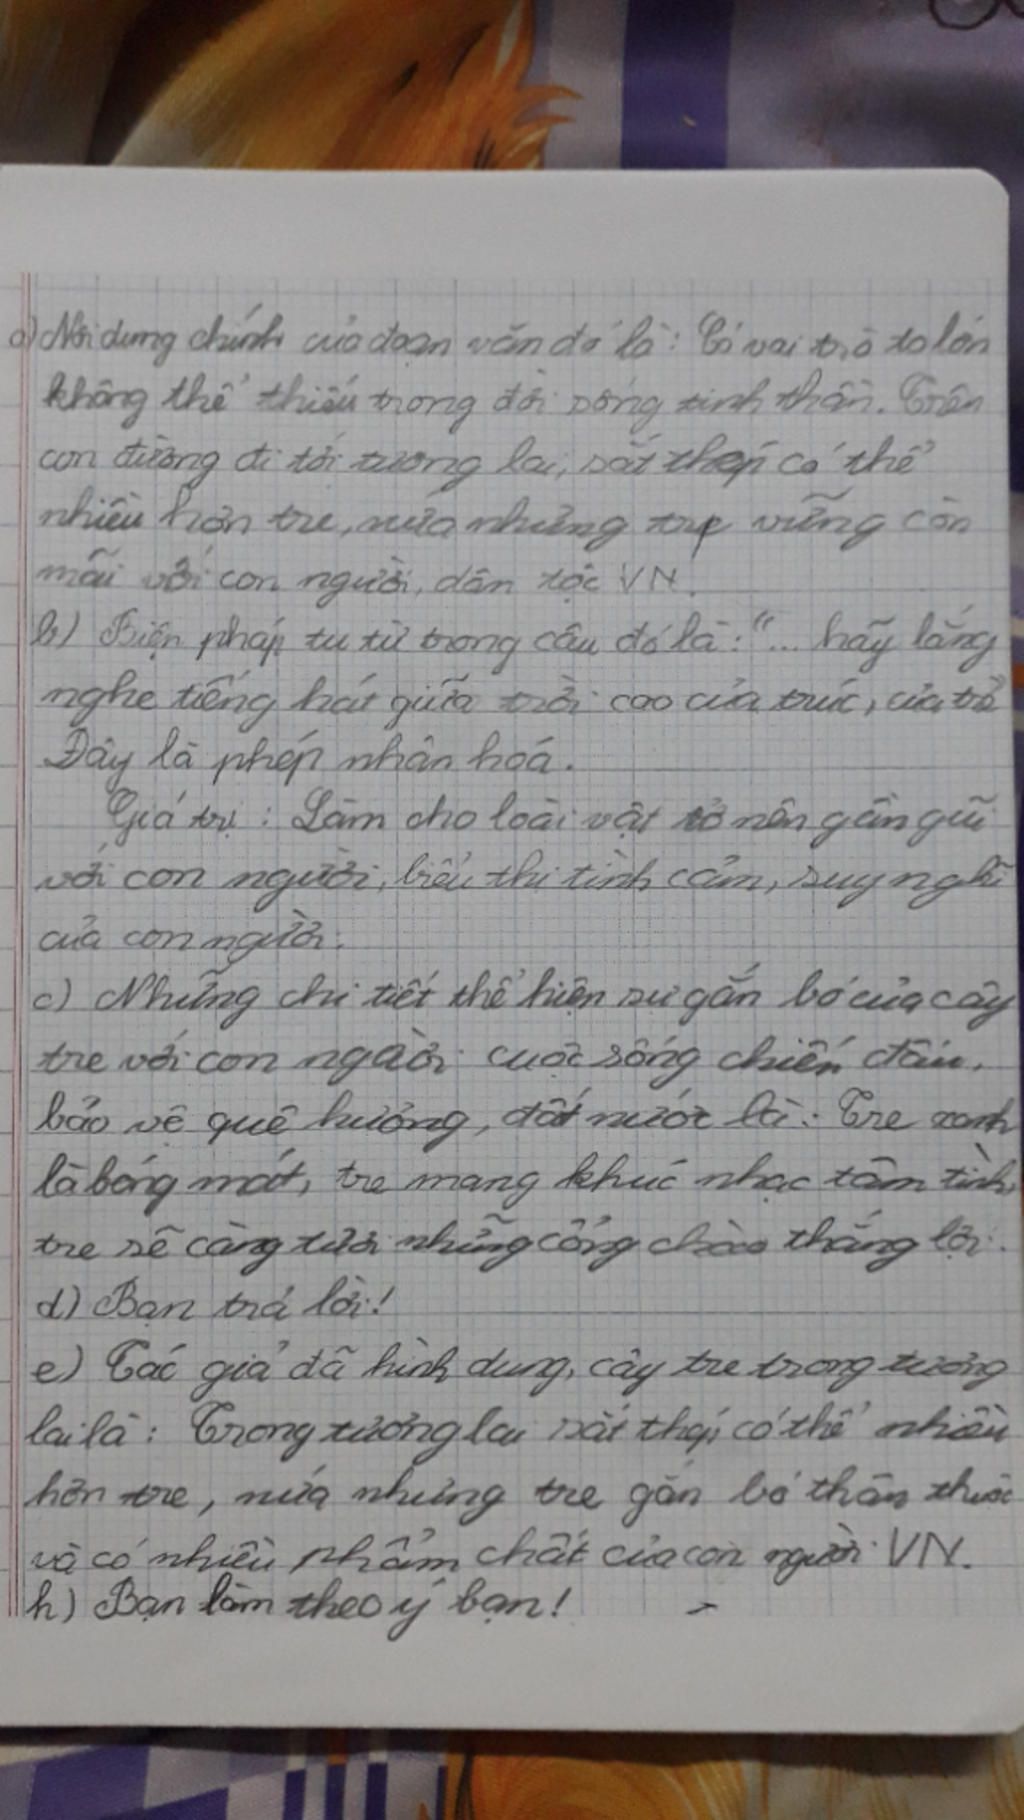 a) Nội dung chính của đoạn văn đó là: Có vai trò to lớn
không thể thiếu trong đời sống tinh thần. Trên
con đường đi tới tương lai, sắt thép có thể
nhiều hơn tre, nứa nhưng tre vững còn
mãi với con người, dân tộc VN.
b) Biện pháp tu từ trong câu đó là: "... hãy lắng
nghe tiếng hát giữa trời cao của trúc, của tre
Đây là phép nhân hoá.
Giá trị: Làm cho loài vật trở nên gần gũi
với con người, biểu thị tình cảm, suy nghĩ
của con người.
c) Những chi tiết thể hiện sự gắn bó của cây
tre với con người cuộc sống chiến đấu,
bảo vệ quê hương, đất nước là: Tre xanh
là bóng mát, tre mang khúc nhạc tâm tình,
tre sẽ càng tươi những cổng chào thắng lợi.
d) Bạn trả lời!
e) Tác giả đã hình dung, cây tre trong tương
lai là: Trong tương lai sắt thép có thể nhiều
hơn tre, nứa nhưng tre gắn bó thân thuộc
và có nhiều phẩm chất của con người VN.
h) Bạn làm theo ý bạn!